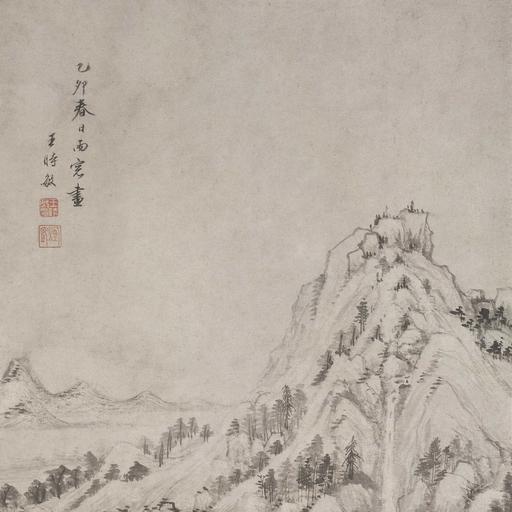 乙卯春日雨窓畫
王時敏